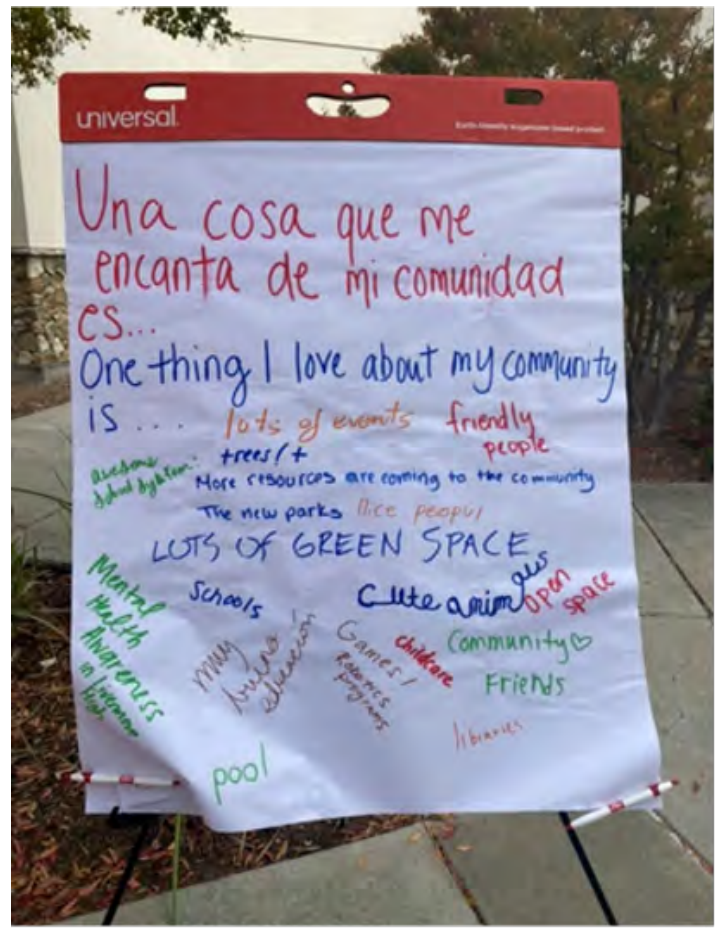 universal.
Una cosa que me
encanta de mi comunidad
es...
One thing I love about my community
is ....
lots of events
friendly
people
awesome
school system!
trees/+
More resources are coming to the community
The new parks
Nice people
LOTS OF GREEN SPACE
Mental
Health
Awareness
in Livermore
high
Schools
Cute animals
open
space
muy
buena
educación
Games/
Robotics
programs
childcare
Community♡
Friends
libraries
pool